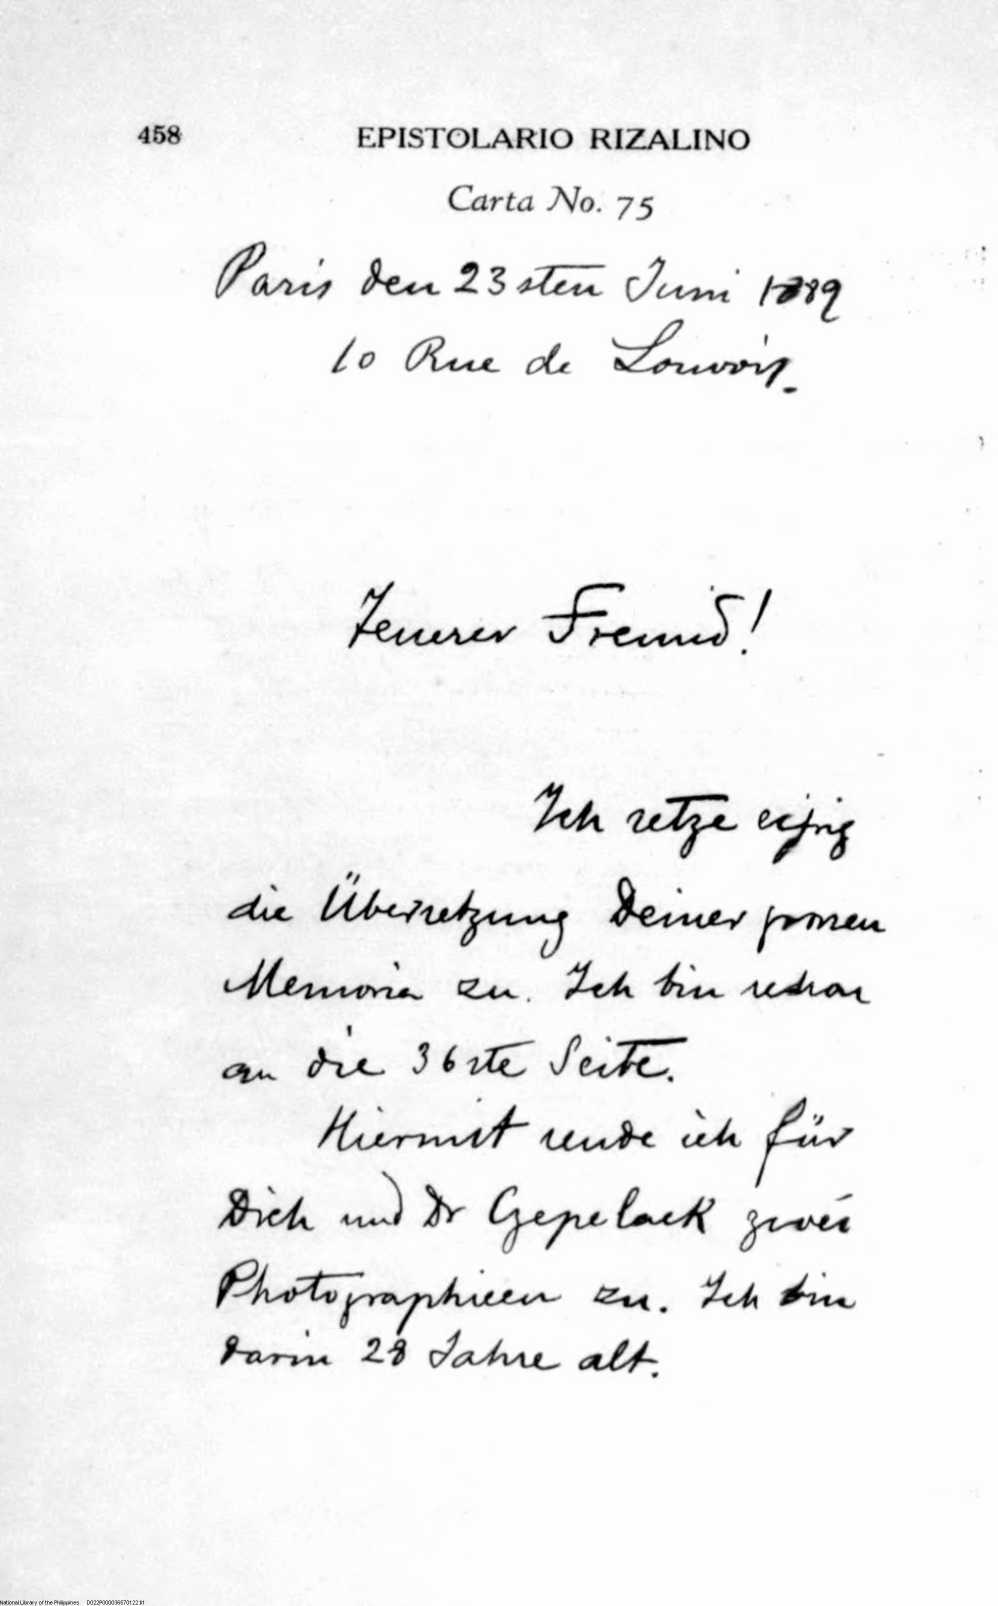 458
EPISTOLARIO RIZALINO
Carta No. 75
Paris den 23sten Juni 1889
10 Rue de Louvois.
Teuerer Freund!
Ich setze eifrig
die Übersetzung Deiner grossen
Memoria zu. Ich bin schon
an die 36ste Seite.
Hiermit sende ich für
Dich und Dr Czepelack zwei
Photographieen zu. Ich bin
darin 28 Jahre alt.
National Library of the Philippines